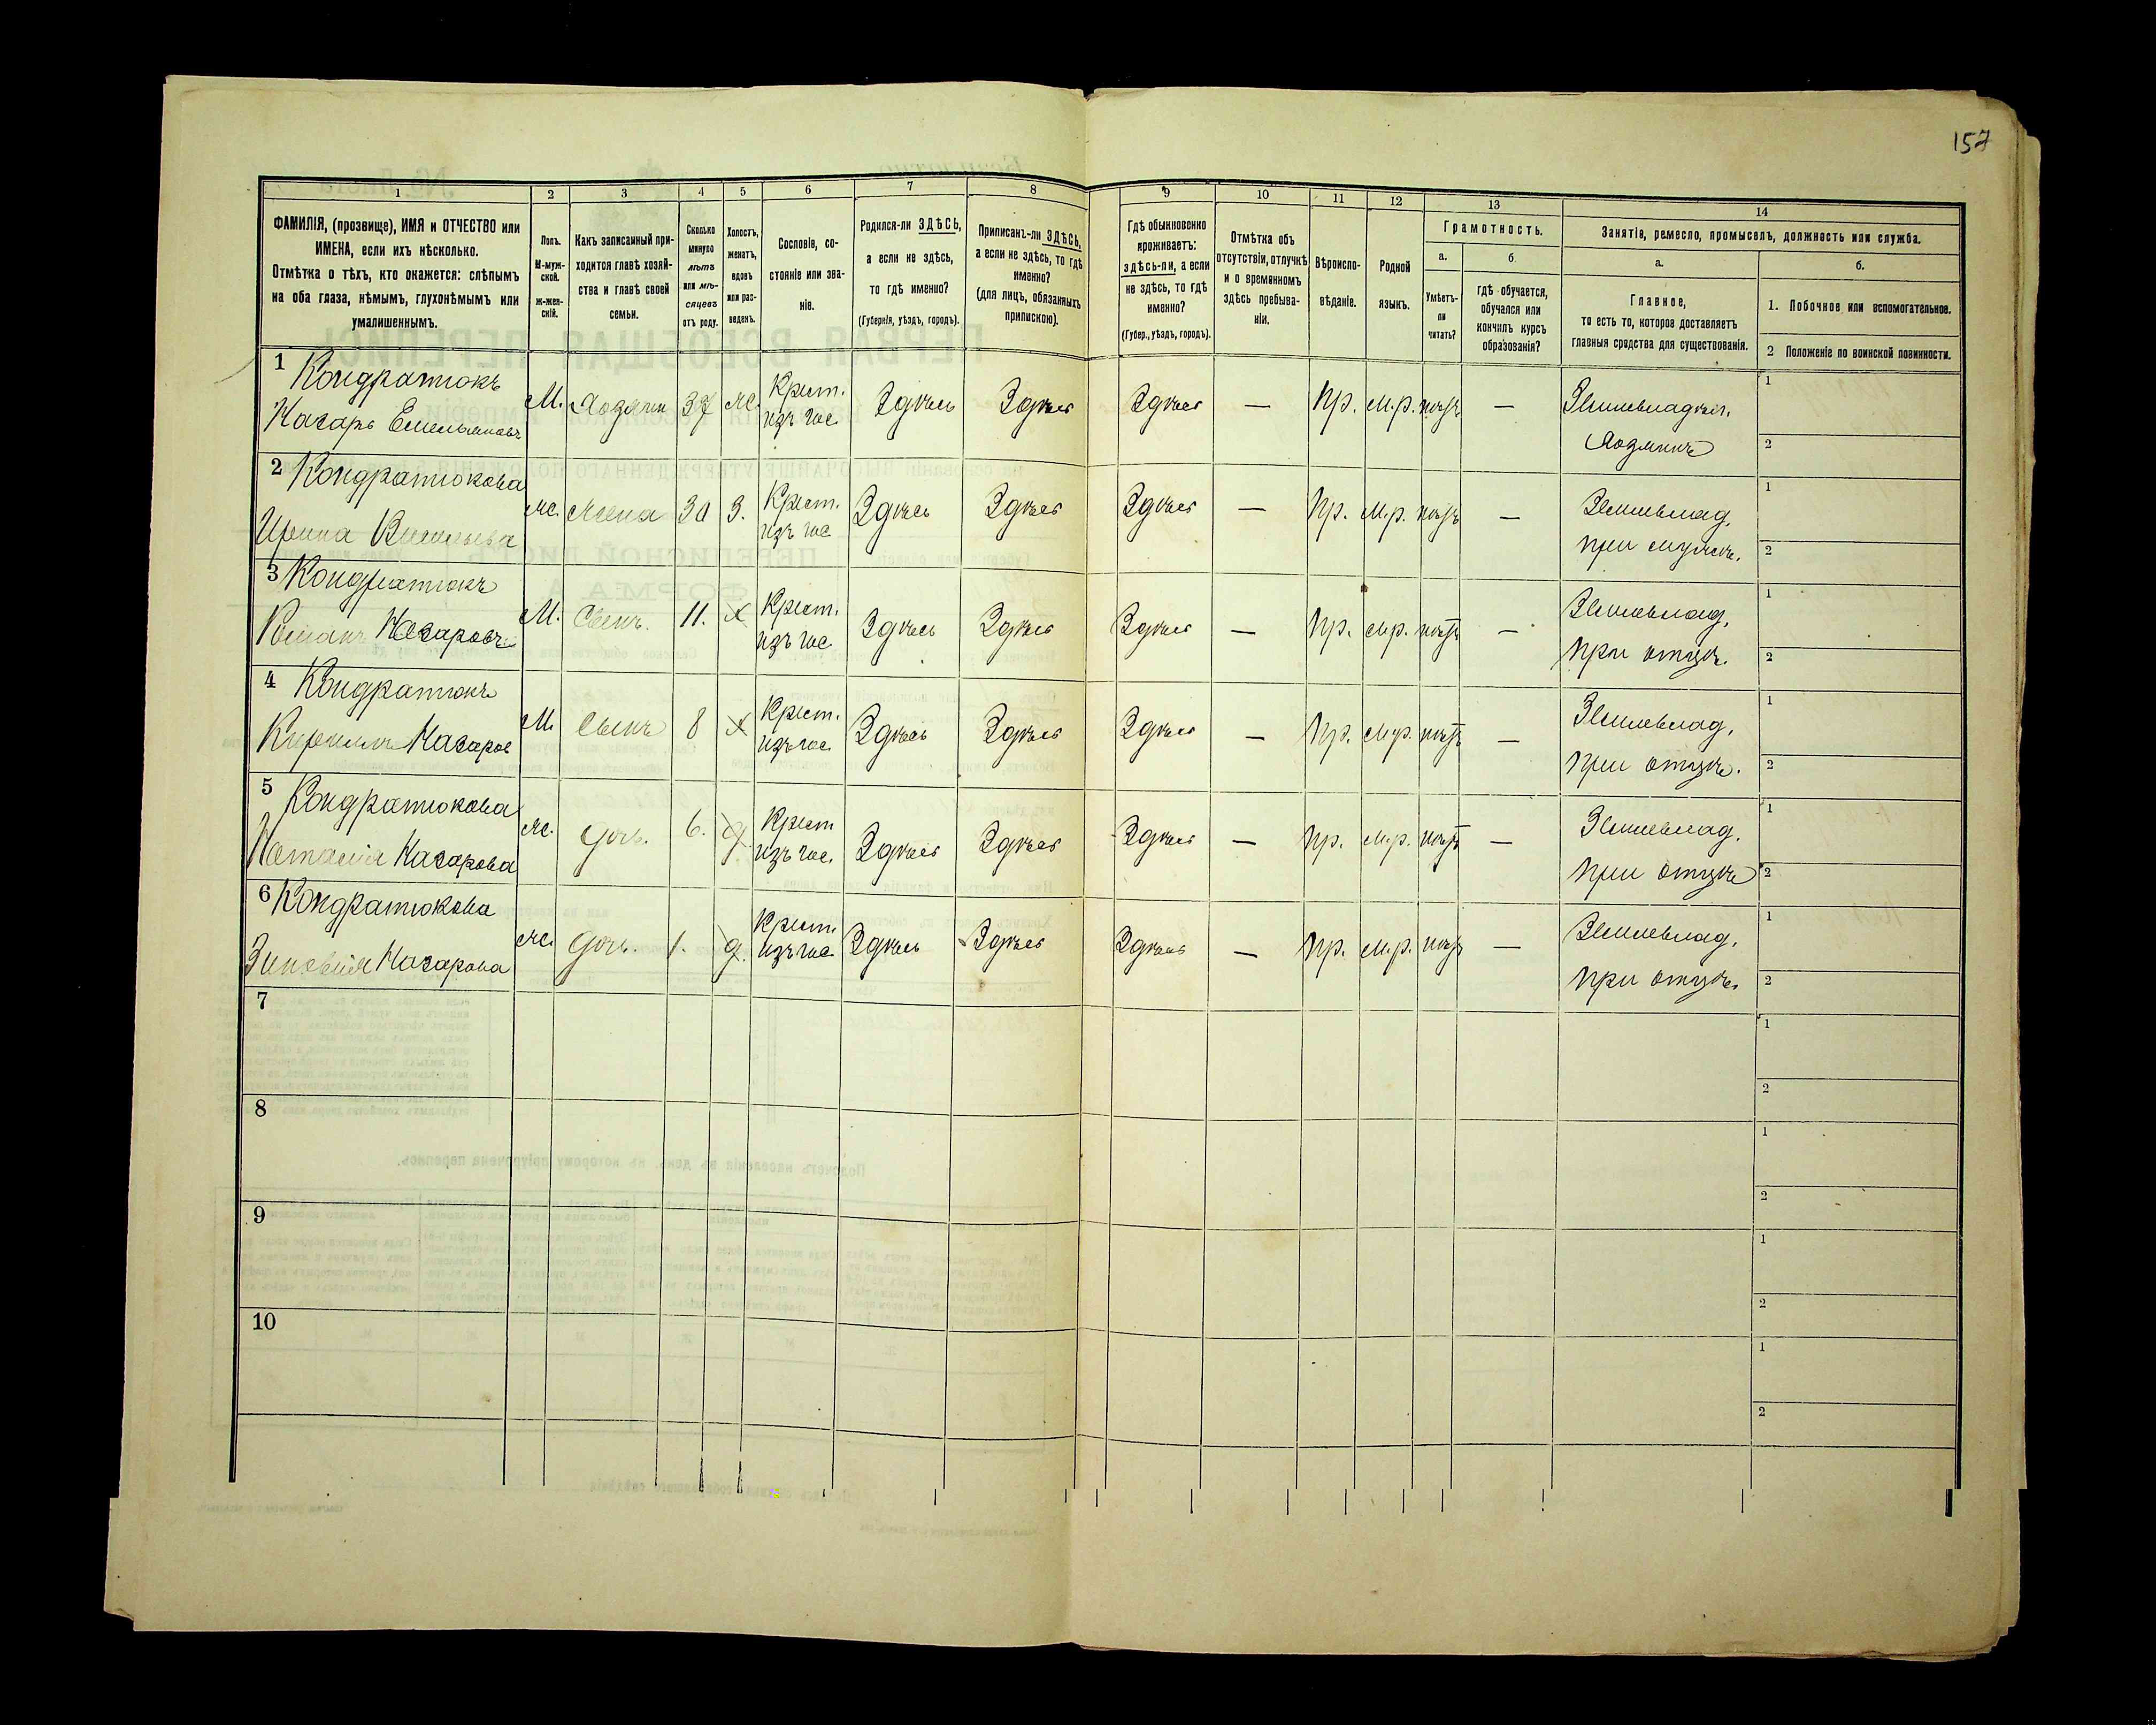 157
1 2 3 4 5 6 7 8 9 10 11 12 13 14
ФАМИЛІЯ, (прозвище), ИМЯ и ОТЧЕСТВО или
ИМЕНА, если ихъ нѣсколько.
Отмѣтка о тѣхъ, кто окажется: слѣпымъ
на оба глаза, нѣмымъ, глухонѣмымъ или
умалишеннымъ.
Полъ.
М-муж-
ской.
ж-жен-
скій.
Какъ записанный при-
ходится главѣ хозяй-
ства и главѣ своей
семьи.
Сколько
минуло
лѣтъ
или мѣ-
сяцевъ
отъ роду.
Холостъ,
женатъ,
вдовъ
или раз-
веденъ.
Сословіе, со-
стояніе или зва-
ніе.
Родился-ли ЗДѢСЬ,
а если не здѣсь,
то гдѣ именно?
(Губернія, уѣздъ, городъ).
Приписанъ-ли ЗДѢСЬ,
а если не здѣсь, то гдѣ
именно?
(для лицъ, обязанныхъ
припискою).
Гдѣ обыкновенно
проживаетъ:
здѣсь-ли, а если
не здѣсь, то гдѣ
именно?
(Губер., уѣздъ, городъ).
Отмѣтка объ
отсутствіи, отлучкѣ
и о временномъ
здѣсь пребыва-
ніи.
Вѣроиспо-
вѣданіе.
Родной
языкъ.
Грамотность.
а.
Умѣетъ-
ли
читать?
б.
гдѣ обучается,
обучался или
кончилъ курсъ
образованія?
Занятіе, ремесло, промыселъ, должность или служба.
а.
Главное,
то есть то, которое доставляетъ
главныя средства для существованія.
б.
1. Побочное или вспомогательное.
2 Положеніе по воинской повинности.
1 Кондратюкъ
Назаръ Емельяновъ
М. Хозяин 37 ж. Крест. изъ гос. Здѣсь Здѣсь Здѣсь — Пр. м.р. нѣтъ — Землевладѣл.
Хозяинъ
1
2
2 Кондратюкова
Ирина Васильева
ж. жена 30 З. Крест. изъ гос Здѣсь Здѣсь Здѣсь — Пр. м.р. нѣтъ — Землевлад.
при мужѣ.
1
2
3 Кондратюкъ
Романъ Назаровъ
М. Сынъ. 11. х Крест. изъ гос. Здѣсь Здѣсь Здѣсь — Пр. м.р. нѣтъ — Землевлад.
при отцѣ.
1
2
4 Кондратюкъ
Кириллъ Назаров
М. Сынъ 8 х Крест. изъ гос. Здѣсь Здѣсь Здѣсь — Пр. м.р. нѣтъ — Землевлад.
при отцѣ.
1
2
5 Кондратюкова
Наталія Назарова
ж. дочь. 6. д. Крест изъ гос. Здѣсь Здѣсь Здѣсь — Пр. м.р. нѣтъ — Землевлад.
при отцѣ
1
2
6 Кондратюкова
Зиновія Назарова
ж. дочь. 1. д. Крест. изъ гос. Здѣсь Здѣсь Здѣсь — Пр. м.р. нѣтъ — Землевлад.
при отцѣ.
1
2
7
1
2
8
1
2
9
1
2
10
1
2